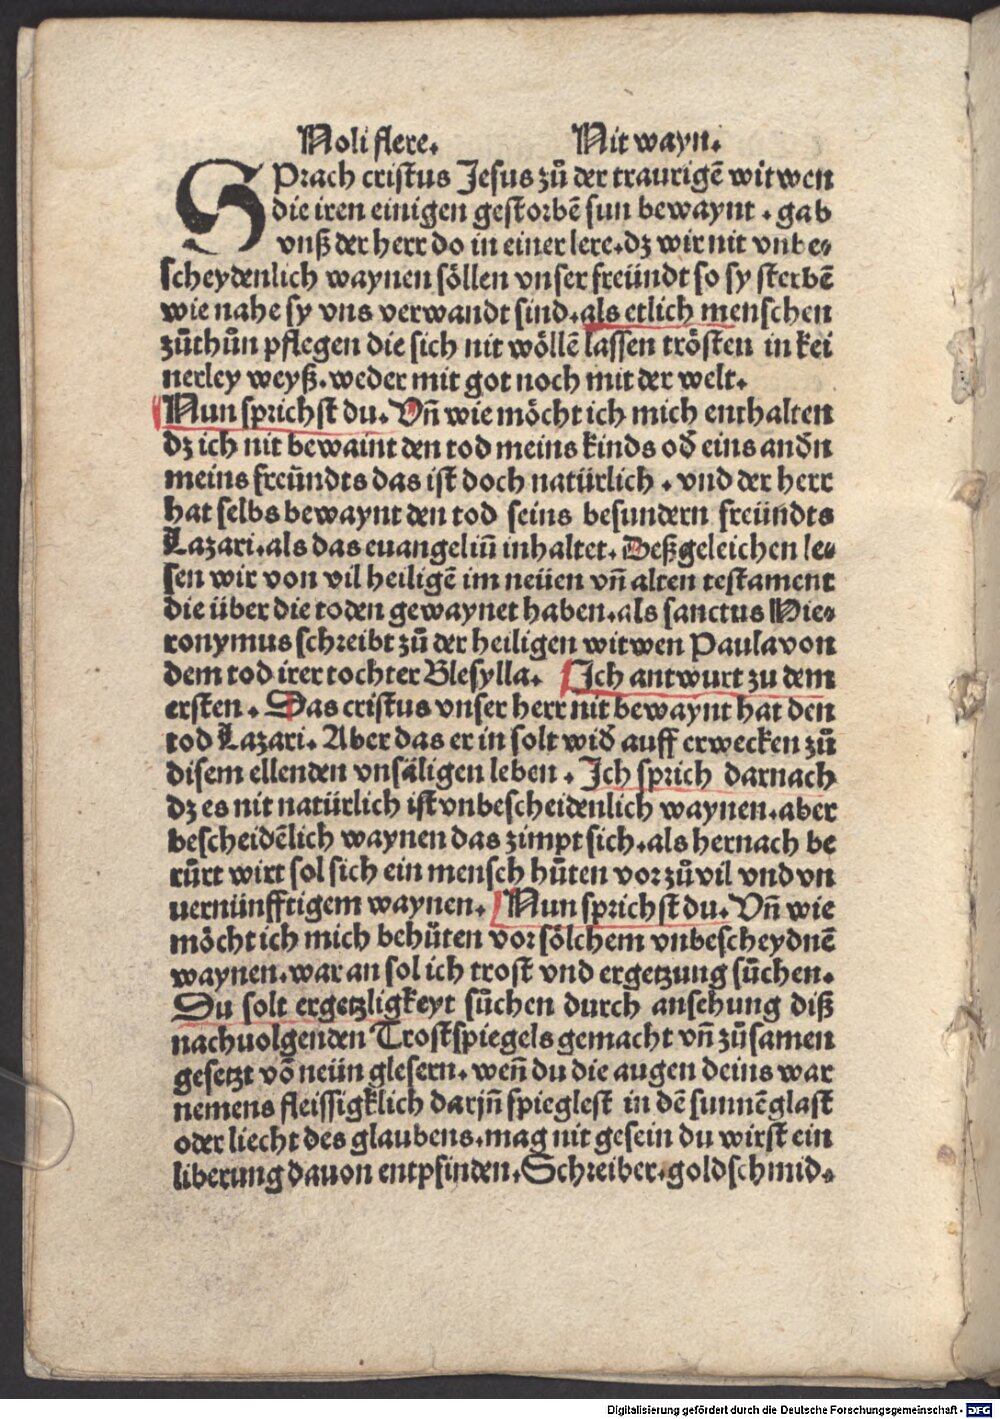 Noli flere. Nit wayn.
SPrach cristus Jesus zů der traurigē witwen
die iren einigen gestorbē sun bewaynt . gab
vnß der herr do in einer lere. dz wir nit vnbe⸗
scheydenlich waynen söllen vnser freündt so sy sterbē
wie nahe sy vns verwandt sind. als etlich menschen
zůthůn pflegen die sich nit wöllē lassen trösten in kei
nerley weyß. weder mit got noch mit der welt.
Nun sprichst du. Vn̄ wie möcht ich mich enthalten
dz ich nit bewaint den tod meins kinds od̄ eins and̄n
meins freündts das ist doch natürlich . vnd der herr
hat selbs bewaynt den tod seins besundern freündts
Lazari. als das euangeliū inhaltet. Deßgeleichen le⸗
sen wir von vil heiligē im neüen vn̄ alten testament
die über die toden gewaynet haben. als sanctus Hie⸗
ronymus schreibt zů der heiligen witwen Paula von
dem tod irer tochter Blesylla. Ich antwurt zu dem
ersten . Das cristus vnser herr nit bewaynt hat den
tod Lazari. Aber das er in solt wid̄ auff erwecken zů
disem ellenden vnsäligen leben . Ich sprich darnach
dz es nit natürlich ist vnbescheidenlich waynen. aber
bescheidēlich waynen das zimpt sich. als hernach be
rürt wirt sol sich ein mensch hüten vor zůvil vnd vn
uernünfftigem waynen. Nun sprichst du. Vn̄ wie
möcht ich mich behüten vor sölchem vnbescheydnē
waynen. war an sol ich trost vnd ergetzung sůchen.
Du solt ergetzligkeyt sůchen durch ansehung diß
nachuolgenden Trostspiegels gemacht vn̄ zůsamen
gesetzt vō neün glesern. wen̄ du die augen deins war
nemens fleissigklich darjn̄ spieglest in dē sunnēglast
oder liecht des glaubens. mag nit gesein du wirst ein
liberung dauon entpfinden. Schreiber. goldschmid⸗
Digitalisierung gefördert durch die Deutsche Forschungsgemeinschaft - DFG